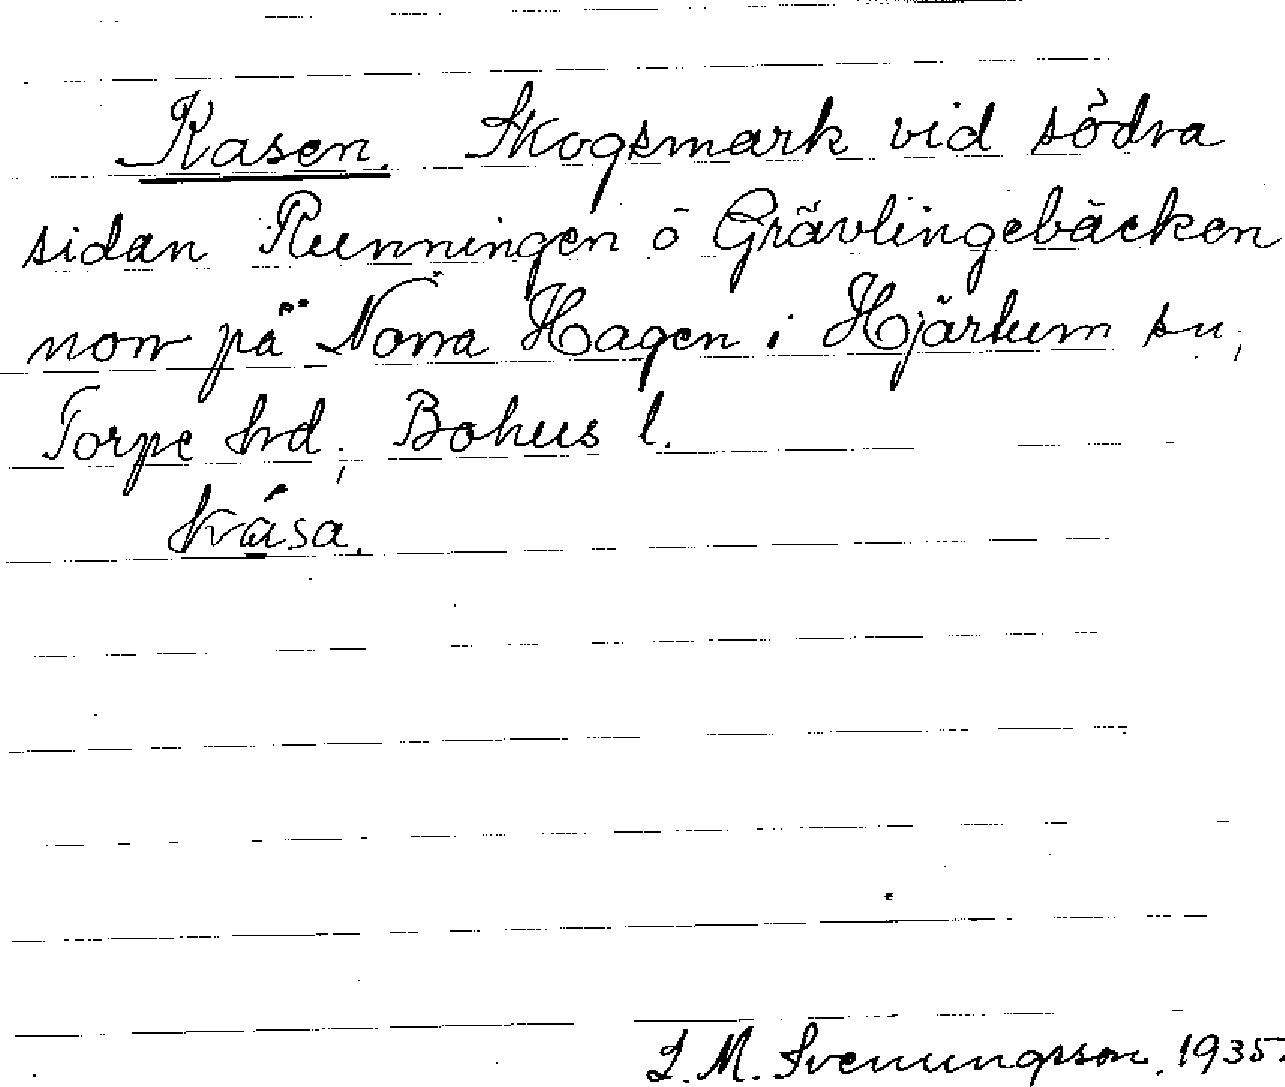 Kasen. Skogsmark vid södra
sidan Runningen o Grävlingebäcken
norr på Norra Hagen i Hjärtum sn,
Torpe hrd, Bohus l.
kràsa.
J. M. Svenungsson. 1935.